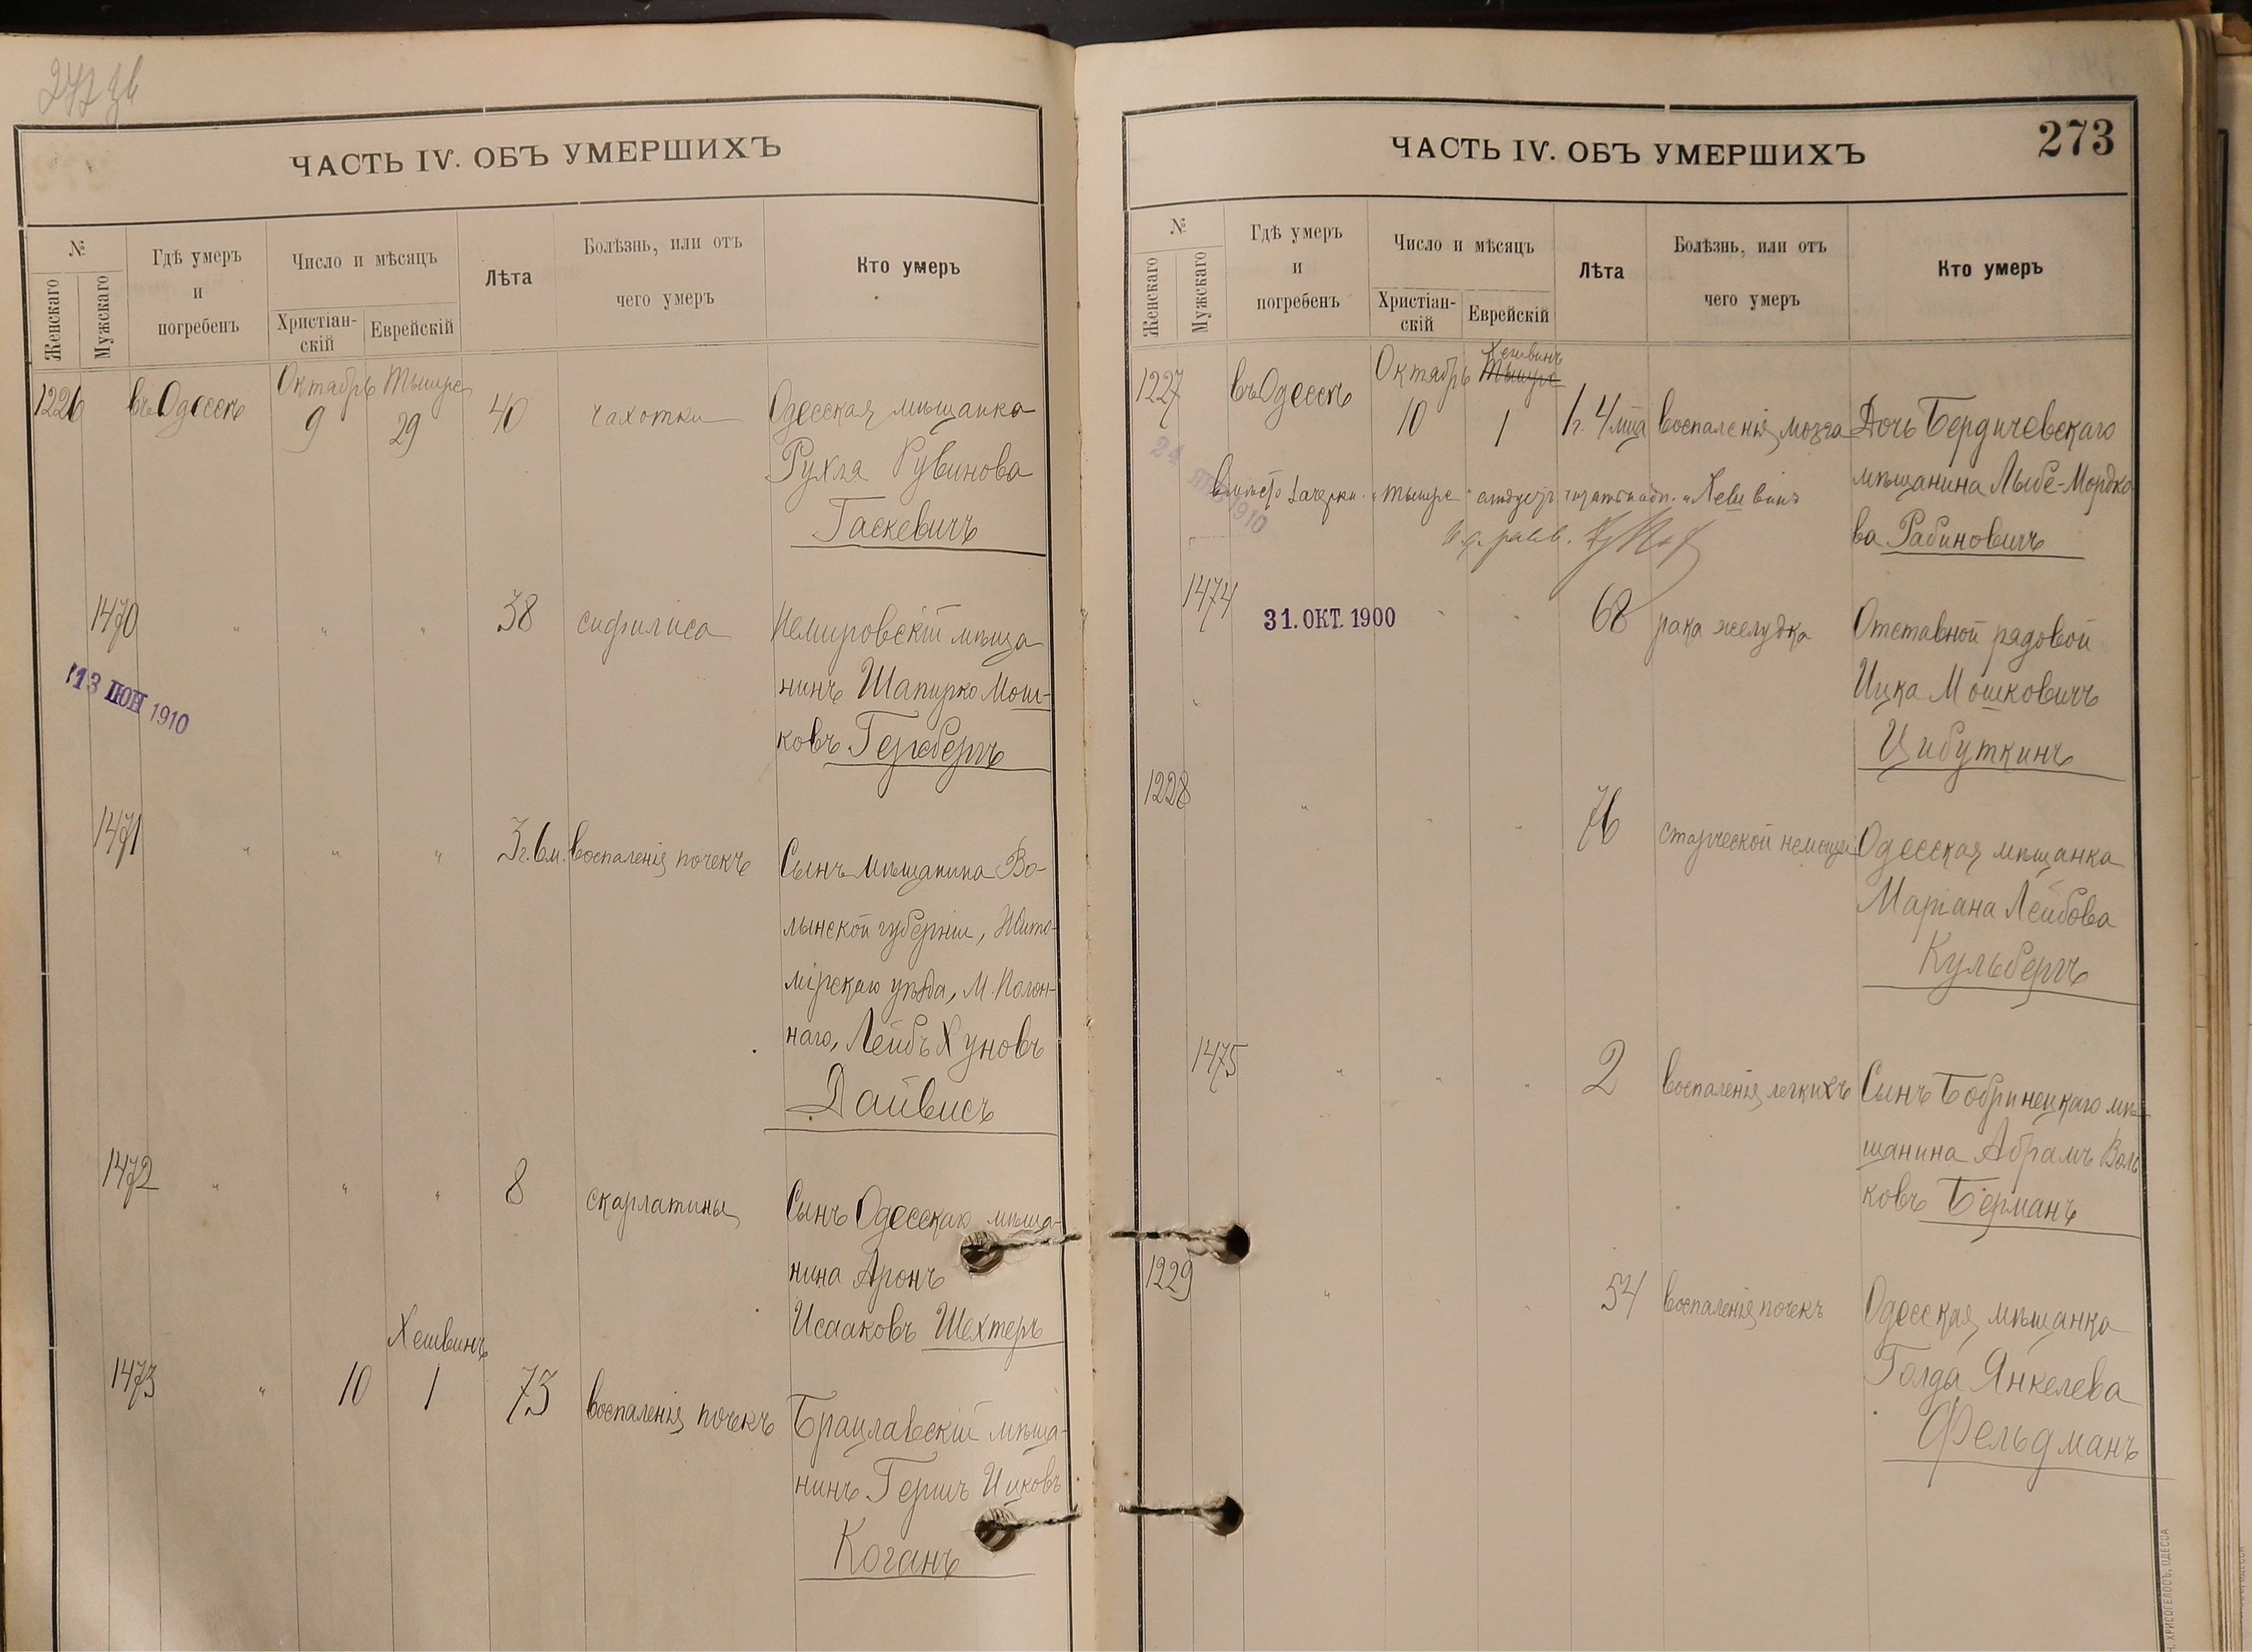 ЧАСТЬ IV. ОБЪ УМЕРШИХЪ
№
Женскаго
Мужскаго
Гдѣ умеръ
и
погребенъ
Число и мѣсяцъ
Христіан-
скій
Еврейскій
Лѣта
Болѣзнь, или отъ
чего умеръ
Кто умеръ
Октябрь Тышре
1226 въ Одессѣ 9 29 40 чахотки Одесская мѣщанка
Рухля Рувинова
Гаскевичъ
1470 " " " 38 сифилиса Немировскій мѣща
нинъ Шапирко Мош-
ковъ Герсбергъ
13 ІЮН 1910
1471 " " " 3 г. 6 м. воспаленія почекъ Сынъ мѣщанина Во-
лынской губерніи, Жито-
мірскаго уѣзда, М. Полон-
наго, Лейбъ Хуновъ
Дайвисъ
1472 " " " 8 скарлатины Сынъ Одесскаго мѣща-
нина Аронъ
Исааковъ Шехтеръ
Хешвинъ
1473 " 10 1 73 воспаленія почекъ Брацлавскій мѣща-
нинъ Гершъ Ицковъ
Коганъ
ЧАСТЬ IV. ОБЪ УМЕРШИХЪ
273
№
Женскаго
Мужскаго
Гдѣ умеръ
и
погребенъ
Число и мѣсяцъ
Христіан-
скій
Еврейскій
Лѣта
Болѣзнь, или отъ
чего умеръ
Кто умеръ
Хешвинъ
Октябрь Тышре
1227 въ Одессѣ 10 1 1 г. 4 мца воспаленія мозга Дочь Бердичевскаго
мѣщанина Лыбе-Мордко
ва Рабиновичъ
24 ЯНВ 1910
вмѣсто зачерки. "Тышре" слѣдуетъ читать надп. "Хешвинъ
И. д. равв.
1474 31. ОКТ. 1900 " " 68 рака желудка Отставной рядовой
Ицка Мошковичъ
Цибуткинъ
1228 " " " 76 старческой немощи Одесская мѣщанка
Маріана Лейбова
Кульбергъ
1475 " " " 2 воспаленія легкихъ Сынъ Бобринецкаго мѣ-
щанина Абрамъ Воль
ковъ Берманъ
1229 " " " 54 воспаленія почекъ Одесская мѣщанка
Голда Янкелева
Фельдманъ
Н. ХРИСОГЕЛОСЪ. ОДЕССА